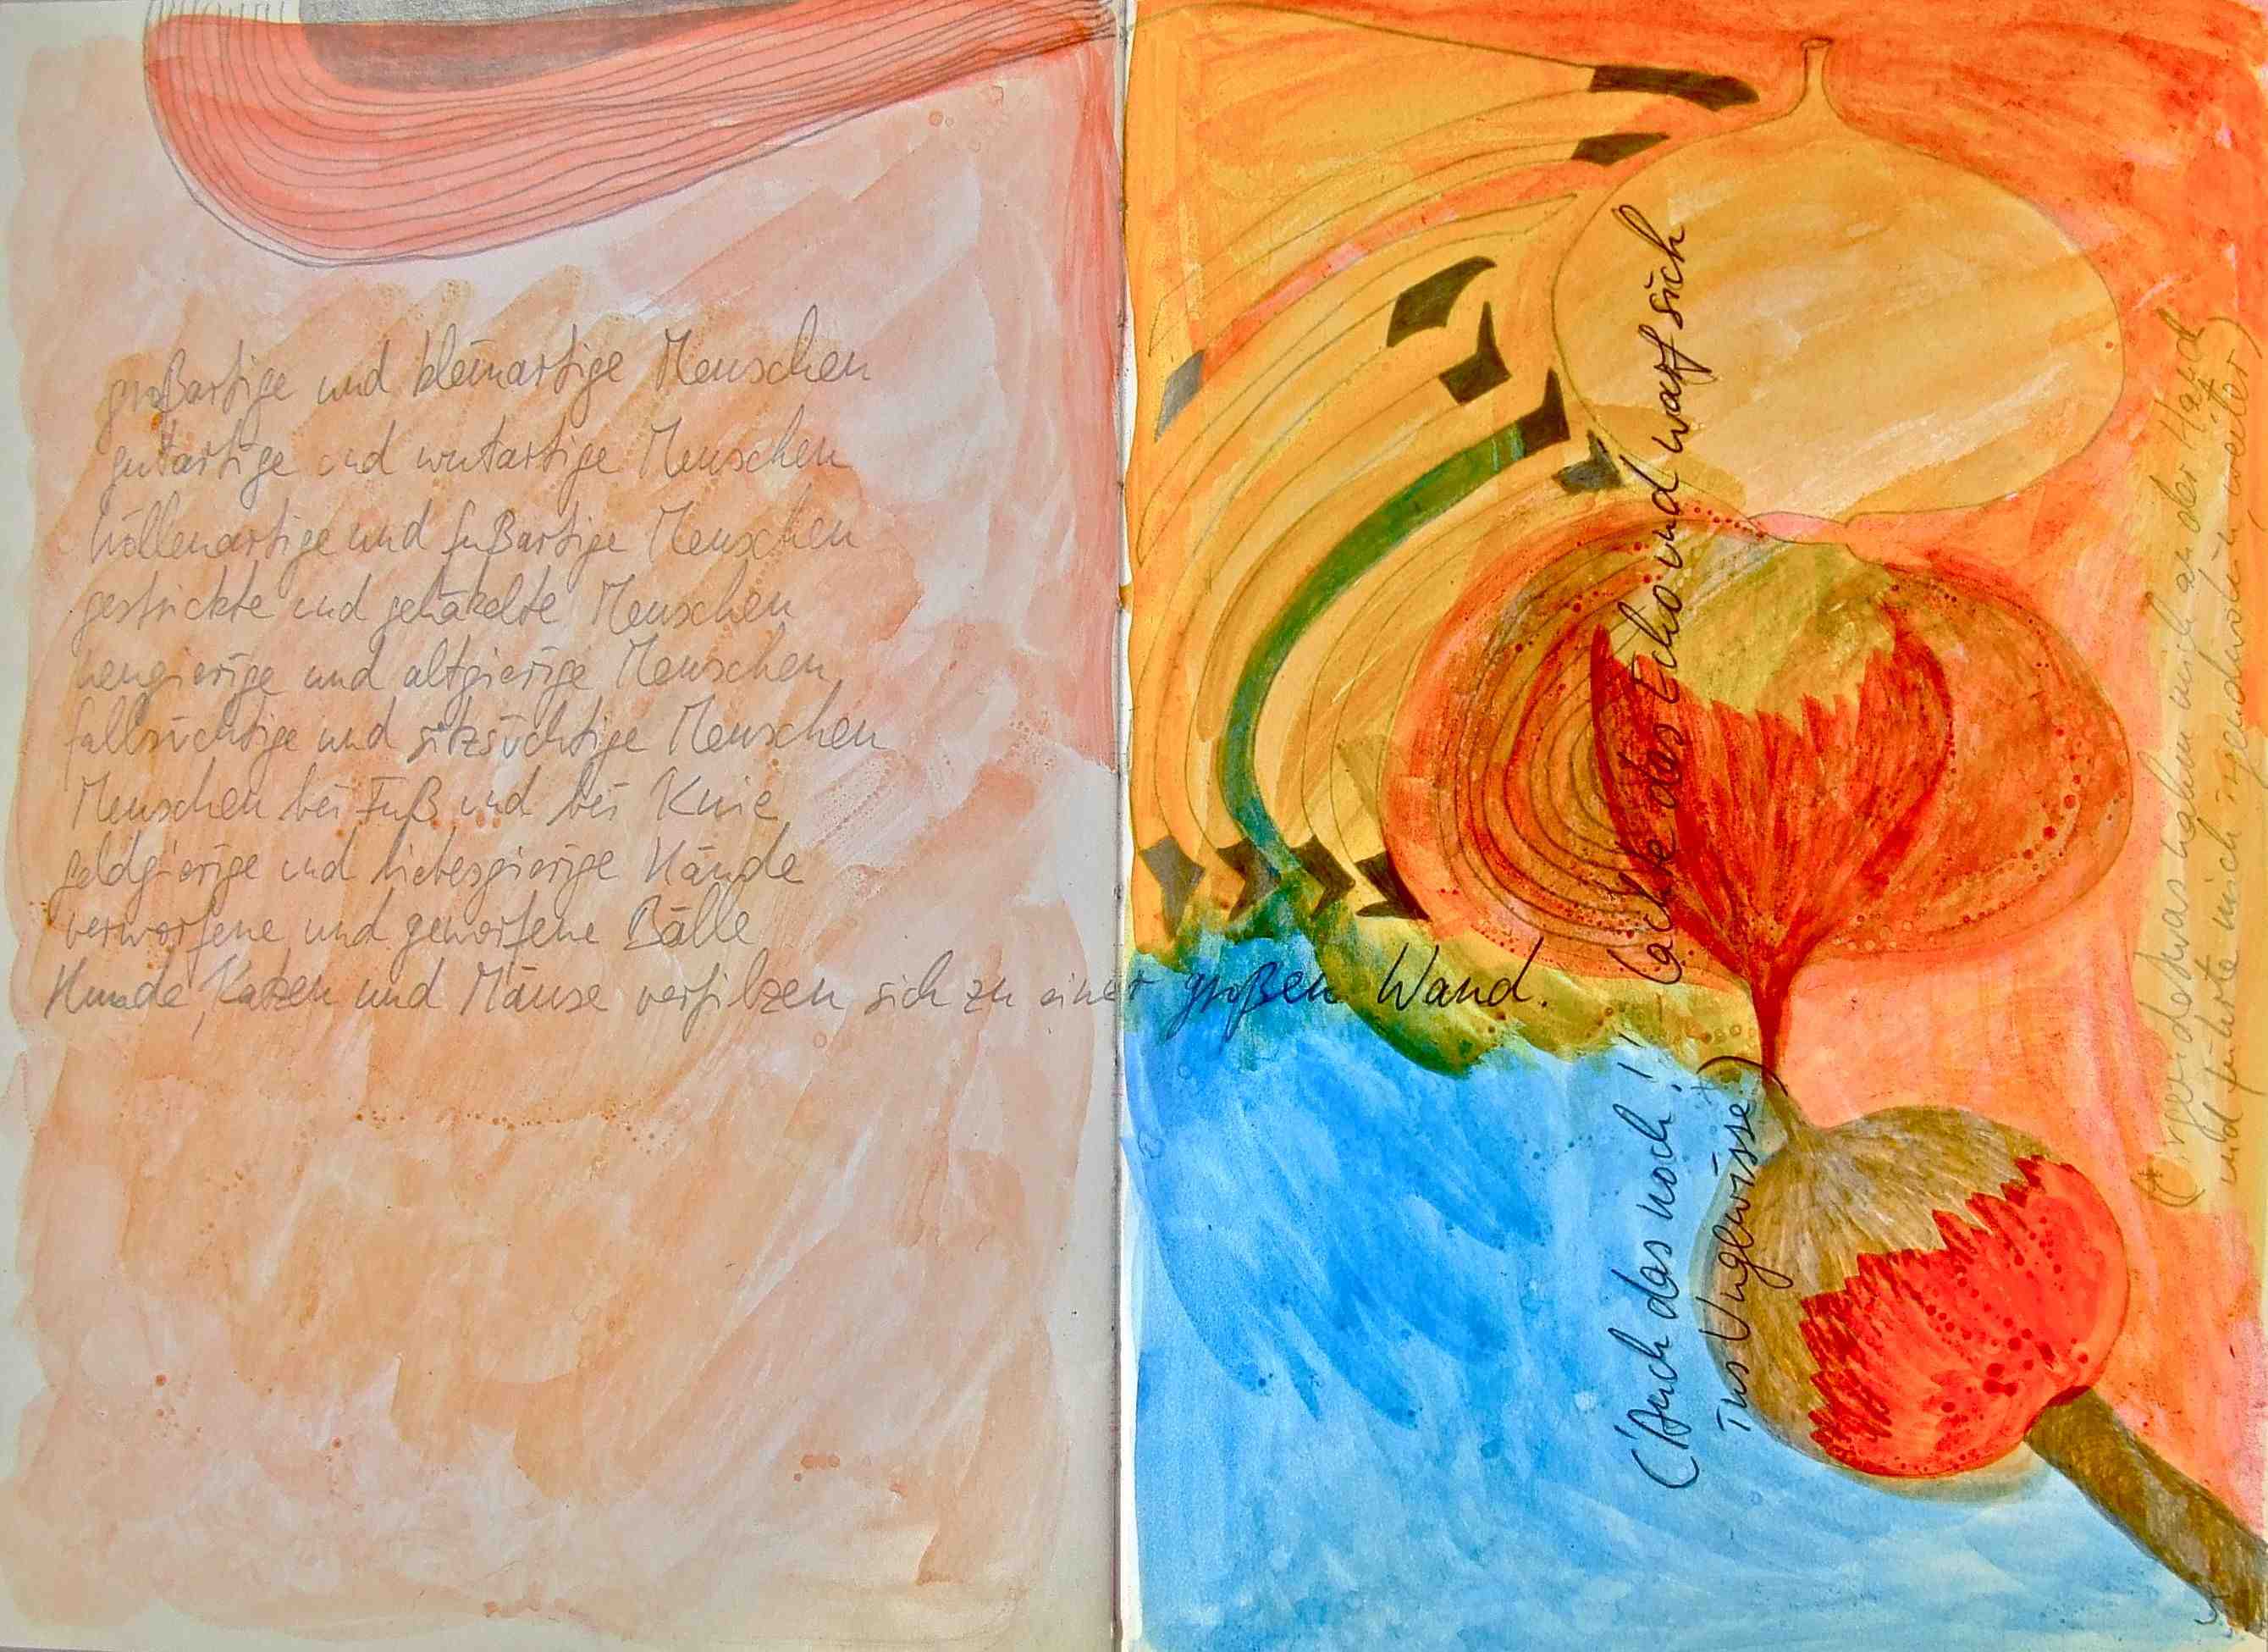 großartige und kleinartige Menschen
gutartige und wutartige Menschen
höllenartige und fußartige Menschen
gestrickte und gehäkelte Menschen
neugierige und altgierige Menschen
fallsüchtige und sitzsüchtige Menschen
Menschen bei Fuß und bei Knie
geldgierige und liebesgierige Hände
verworfene und geworfene Bälle
Hunde, Katzen und Mäuse verfilzen sich zu einer großen Wand.
('Auch das noch!' lachte das Echo und warf sich
ins Ungewisse*)
(* irgendetwas nahm mich an der Hand
und führte mich irgendwohin weiter)